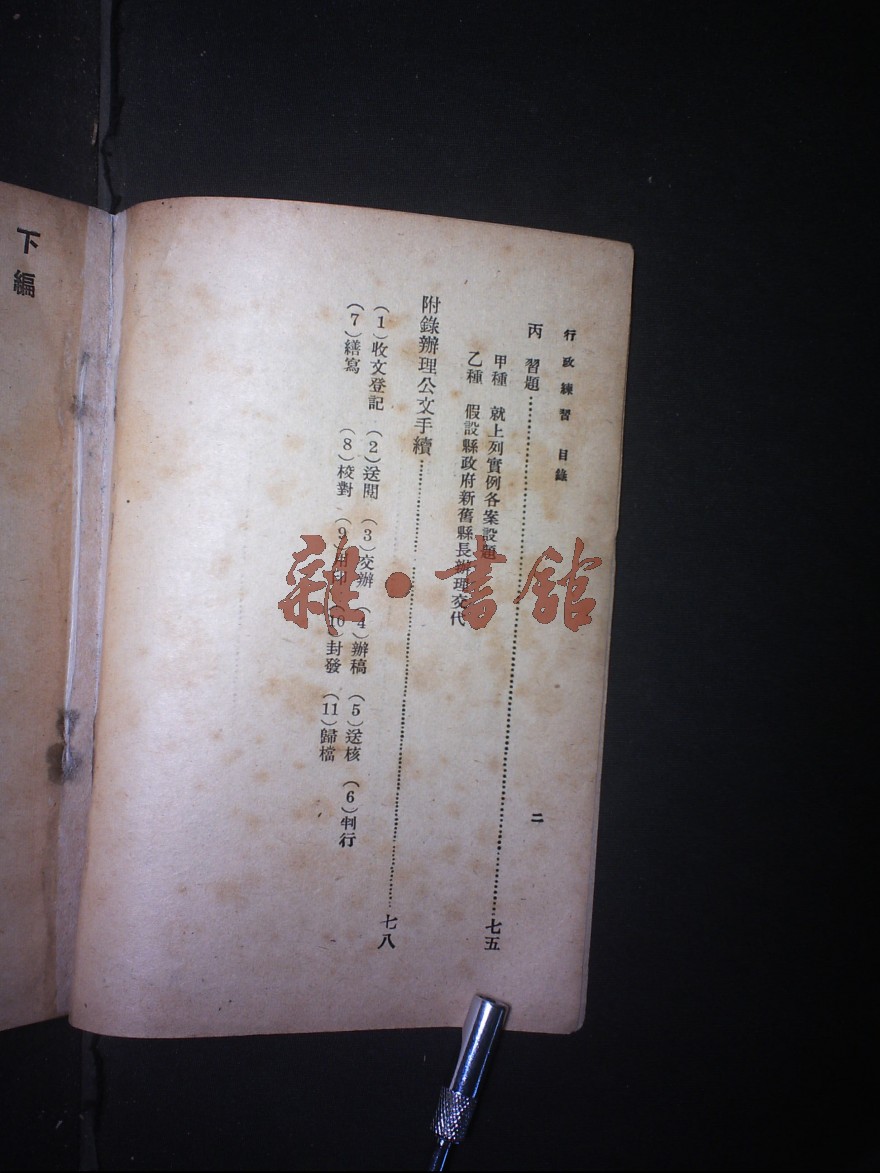 行政練習 目錄
二
丙 習題……七五
甲種 就上列實例各案設題
乙種 假設縣政府新舊縣長辦理交代
附錄辦理公文手續……七八
(1)收文登記 (2)送閱 (3)交辦 (4)辦稿 (5)送核 (6)判行
(7)繕寫 (8)校對 (9)用印 (10)封發 (11)歸檔
下編
雜·書館